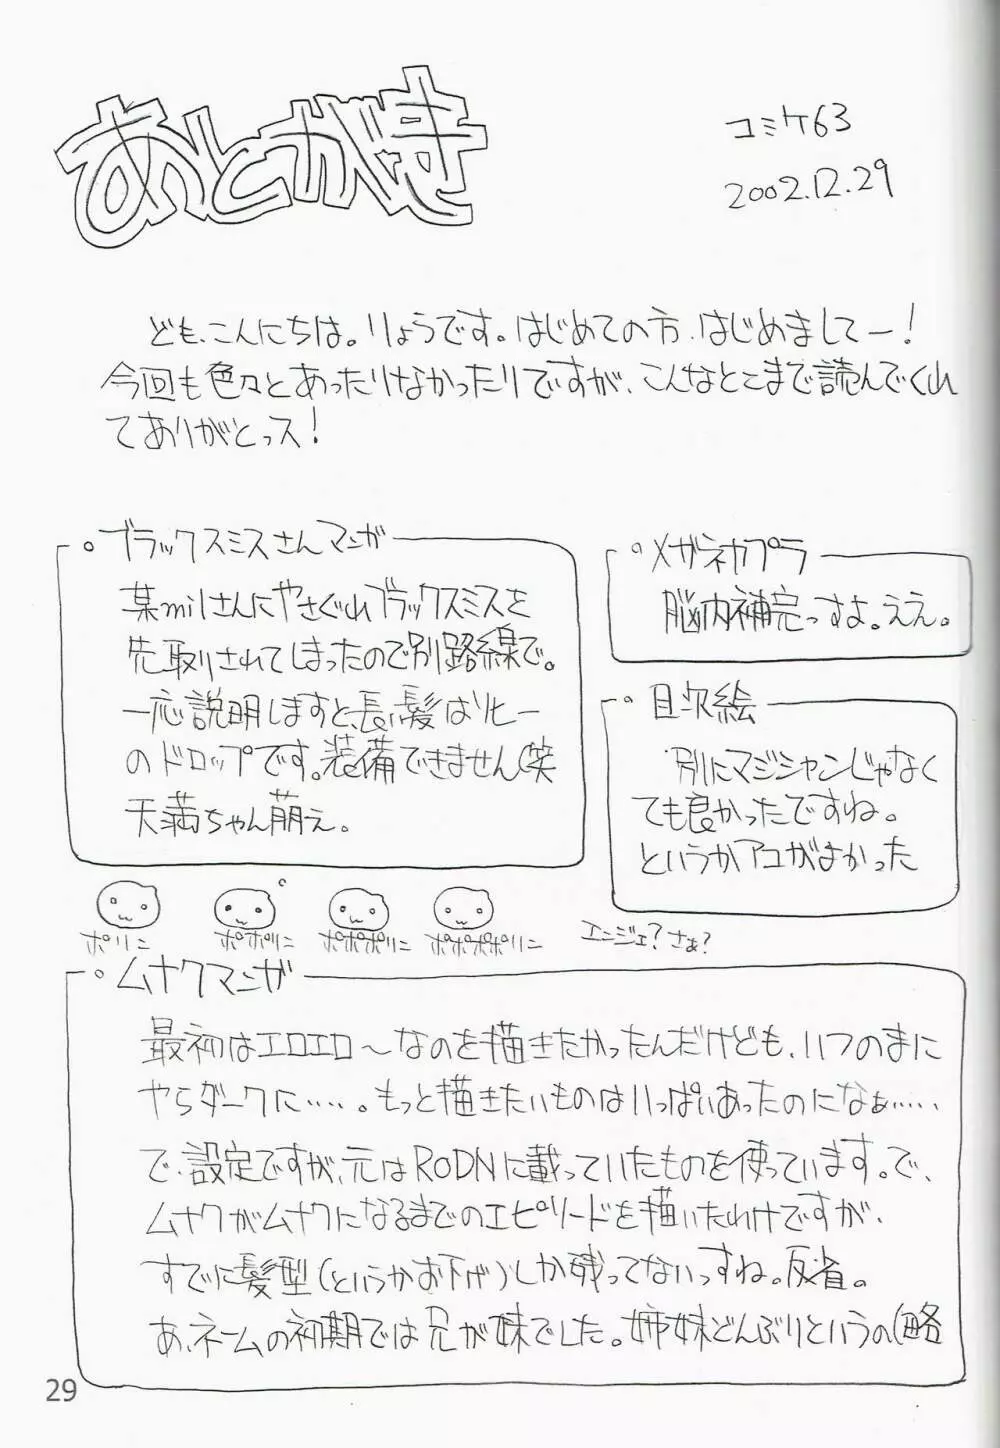 あとがき
コミケ63
2002.12.29
ども、こんにちは。りょうです。はじめての方、はじめましてー!
今回も色々とあったりなかったりですが、こんなとこまで読んでくれ
てありがとっス!
。ブラックスミスさんマンガ
某milさんにやさぐれブラックスミスを
先取りされてしまったので別路線で。
一応説明しますと、長い髪はソヒー
のドロップです。装備できません(笑
天満ちゃん萌え。
。メガネカプラ
脳内補完っすよ。ええ。
。目次絵
別にマジシャンじゃなく
ても良かったですね。
というかアコがよかった
ポリン
ポポリン
ポポポリン
ポポポポリン
エンジェ?さぁ?
。ムナクマンガ
最初はエロエロ～なのを描きたかったんだけども、いつのまに
やらダークに……。もっと描きたいものはいっぱいあったのになぁ……
で、設定ですが、元はRODNに載っていたものを使っています。で、
ムナクがムナクになるまでのエピソードを描いたわけですが、
すでに髪型(というかお下げ)しか残ってないっすね。反省。
あ、ネームの初期では兄が妹でした。姉妹どんぶりというの(略
29